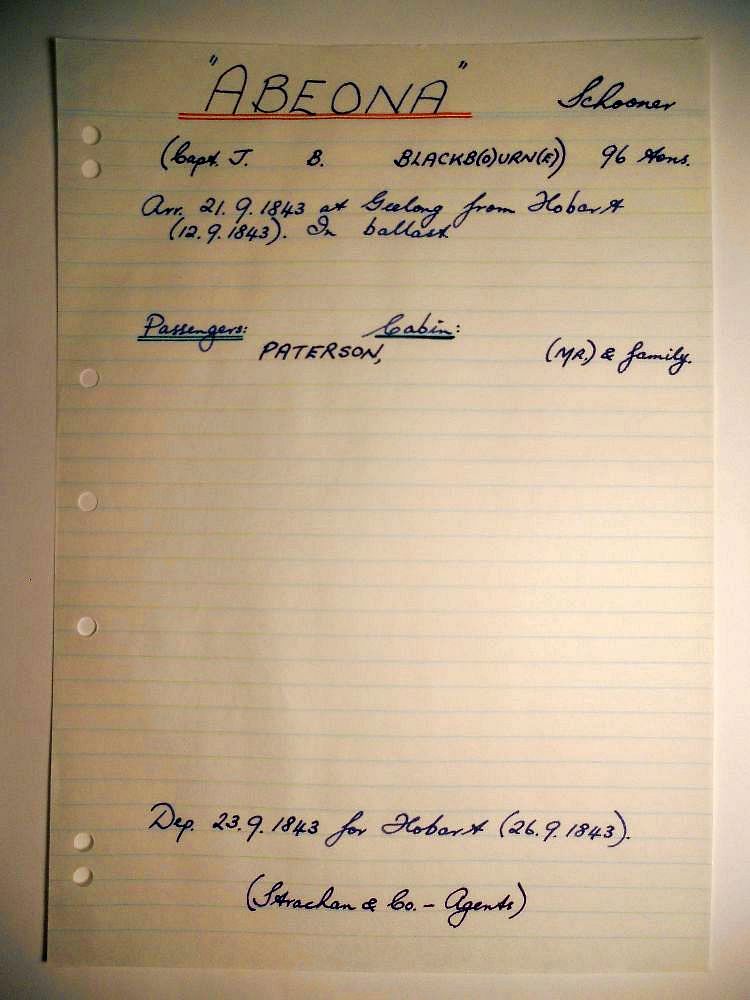 "ABEONA" Schooner
(Capt. J. B. BLACKB(O)URN(E)) 96 tons.
Arr. 21.9.1843 at Geelong from Hobart
(12.9.1843). In ballast
Passengers: Cabin:
PATERSON, (MR.) & family.
Dep. 23.9.1843 for Hobart (26.9.1843).
(Strachan & Co. - Agents)